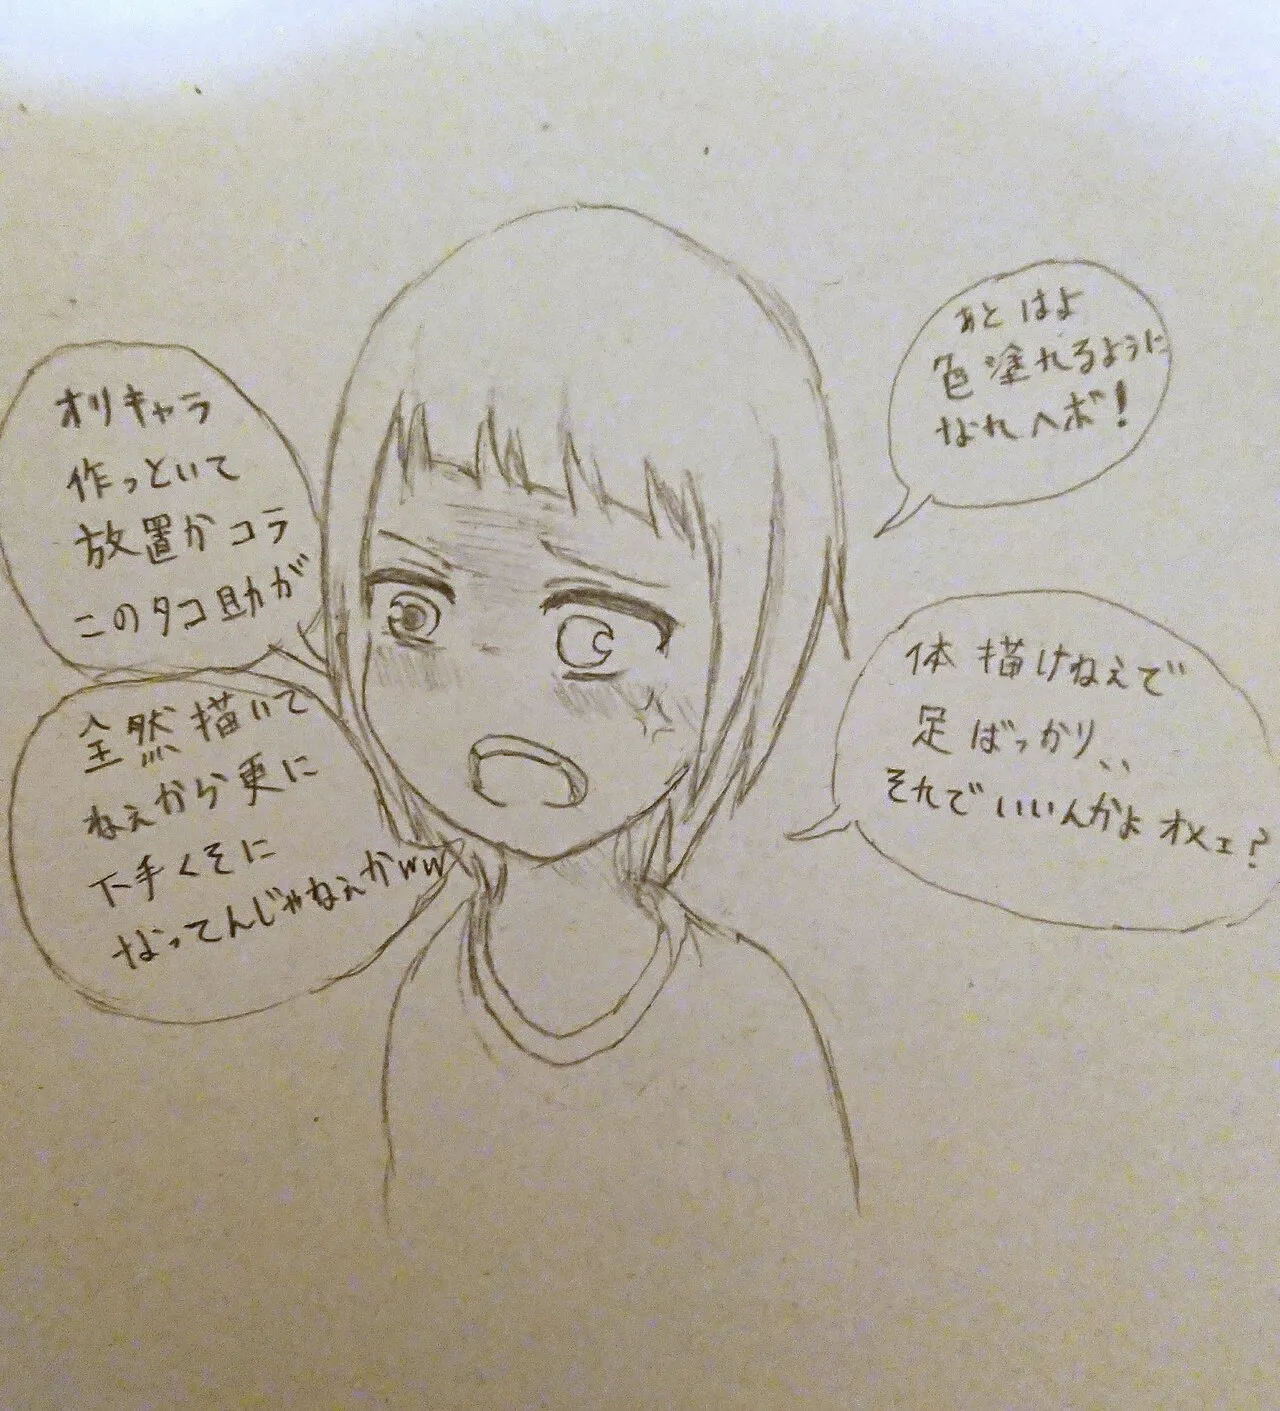 あとはよ
色塗れるように
なれヘボ!
オリキャラ
作っといて
放置かコラ
このタコ助が
体描けねぇで
足ばっかり、、
それでいいんかよオメェ?
全然描いて
ねぇから更に
下手くそに
なってんじゃねぇかww